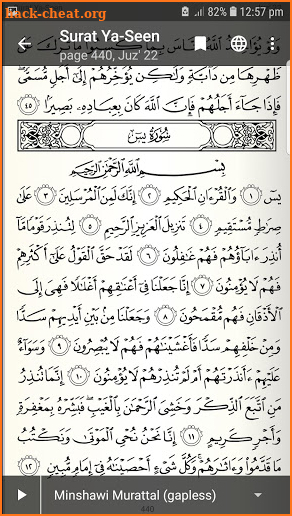 hack-cheat.org 52% 12:57 pm
Surat Ya-Seen
page 440, Juz' 22
ظَهْرِهَا مِن دَآبَّةٍ وَلَـٰكِن يُؤَخِّرُهُمْ إِلَىٰٓ أَجَلٍ مُّسَمًّى ۖ
فَإِذَا جَآءَ أَجَلُهُمْ فَإِنَّ ٱللَّهَ كَانَ بِعِبَادِهِۦ بَصِيرًۢا ٤٥
سُورَةُ يسٓ
بِسْمِ ٱللَّهِ ٱلرَّحْمَـٰنِ ٱلرَّحِيمِ
يسٓ ١ وَٱلْقُرْءَانِ ٱلْحَكِيمِ ٢ إِنَّكَ لَمِنَ ٱلْمُرْسَلِينَ ٣ عَلَىٰ
صِرَٰطٍ مُّسْتَقِيمٍ ٤ تَنزِيلَ ٱلْعَزِيزِ ٱلرَّحِيمِ ٥ لِتُنذِرَ قَوْمًا مَّآ
أُنذِرَ ءَابَآؤُهُمْ فَهُمْ غَـٰفِلُونَ ٦ لَقَدْ حَقَّ ٱلْقَوْلُ عَلَىٰٓ أَكْثَرِهِمْ
فَهُمْ لَا يُؤْمِنُونَ ٧ إِنَّا جَعَلْنَا فِىٓ أَعْنَـٰقِهِمْ أَغْلَـٰلًا فَهِىَ إِلَى
ٱلْأَذْقَانِ فَهُم مُّقْمَحُونَ ٨ وَجَعَلْنَا مِنۢ بَيْنِ أَيْدِيهِمْ سَدًّا
وَمِنْ خَلْفِهِمْ سَدًّا فَأَغْشَيْنَـٰهُمْ فَهُمْ لَا يُبْصِرُونَ ٩ وَسَوَآءٌ
عَلَيْهِمْ ءَأَنذَرْتَهُمْ أَمْ لَمْ تُنذِرْهُمْ لَا يُؤْمِنُونَ ١٠ إِنَّمَا تُنذِرُ
مَنِ ٱتَّبَعَ ٱلذِّكْرَ وَخَشِىَ ٱلرَّحْمَـٰنَ بِٱلْغَيْبِ ۖ فَبَشِّرْهُ بِمَغْفِرَةٍ
وَأَجْرٍ كَرِيمٍ ١١ إِنَّا نَحْنُ نُحْىِ ٱلْمَوْتَىٰ وَنَكْتُبُ
مَا قَدَّمُوا۟ وَءَاثَـٰرَهُمْ ۚ وَكُلَّ شَىْءٍ أَحْصَيْنَـٰهُ فِىٓ إِمَامٍ مُّبِينٍ ١٢
Minshawi Murattal (gapless)
440
hack-cheat.org